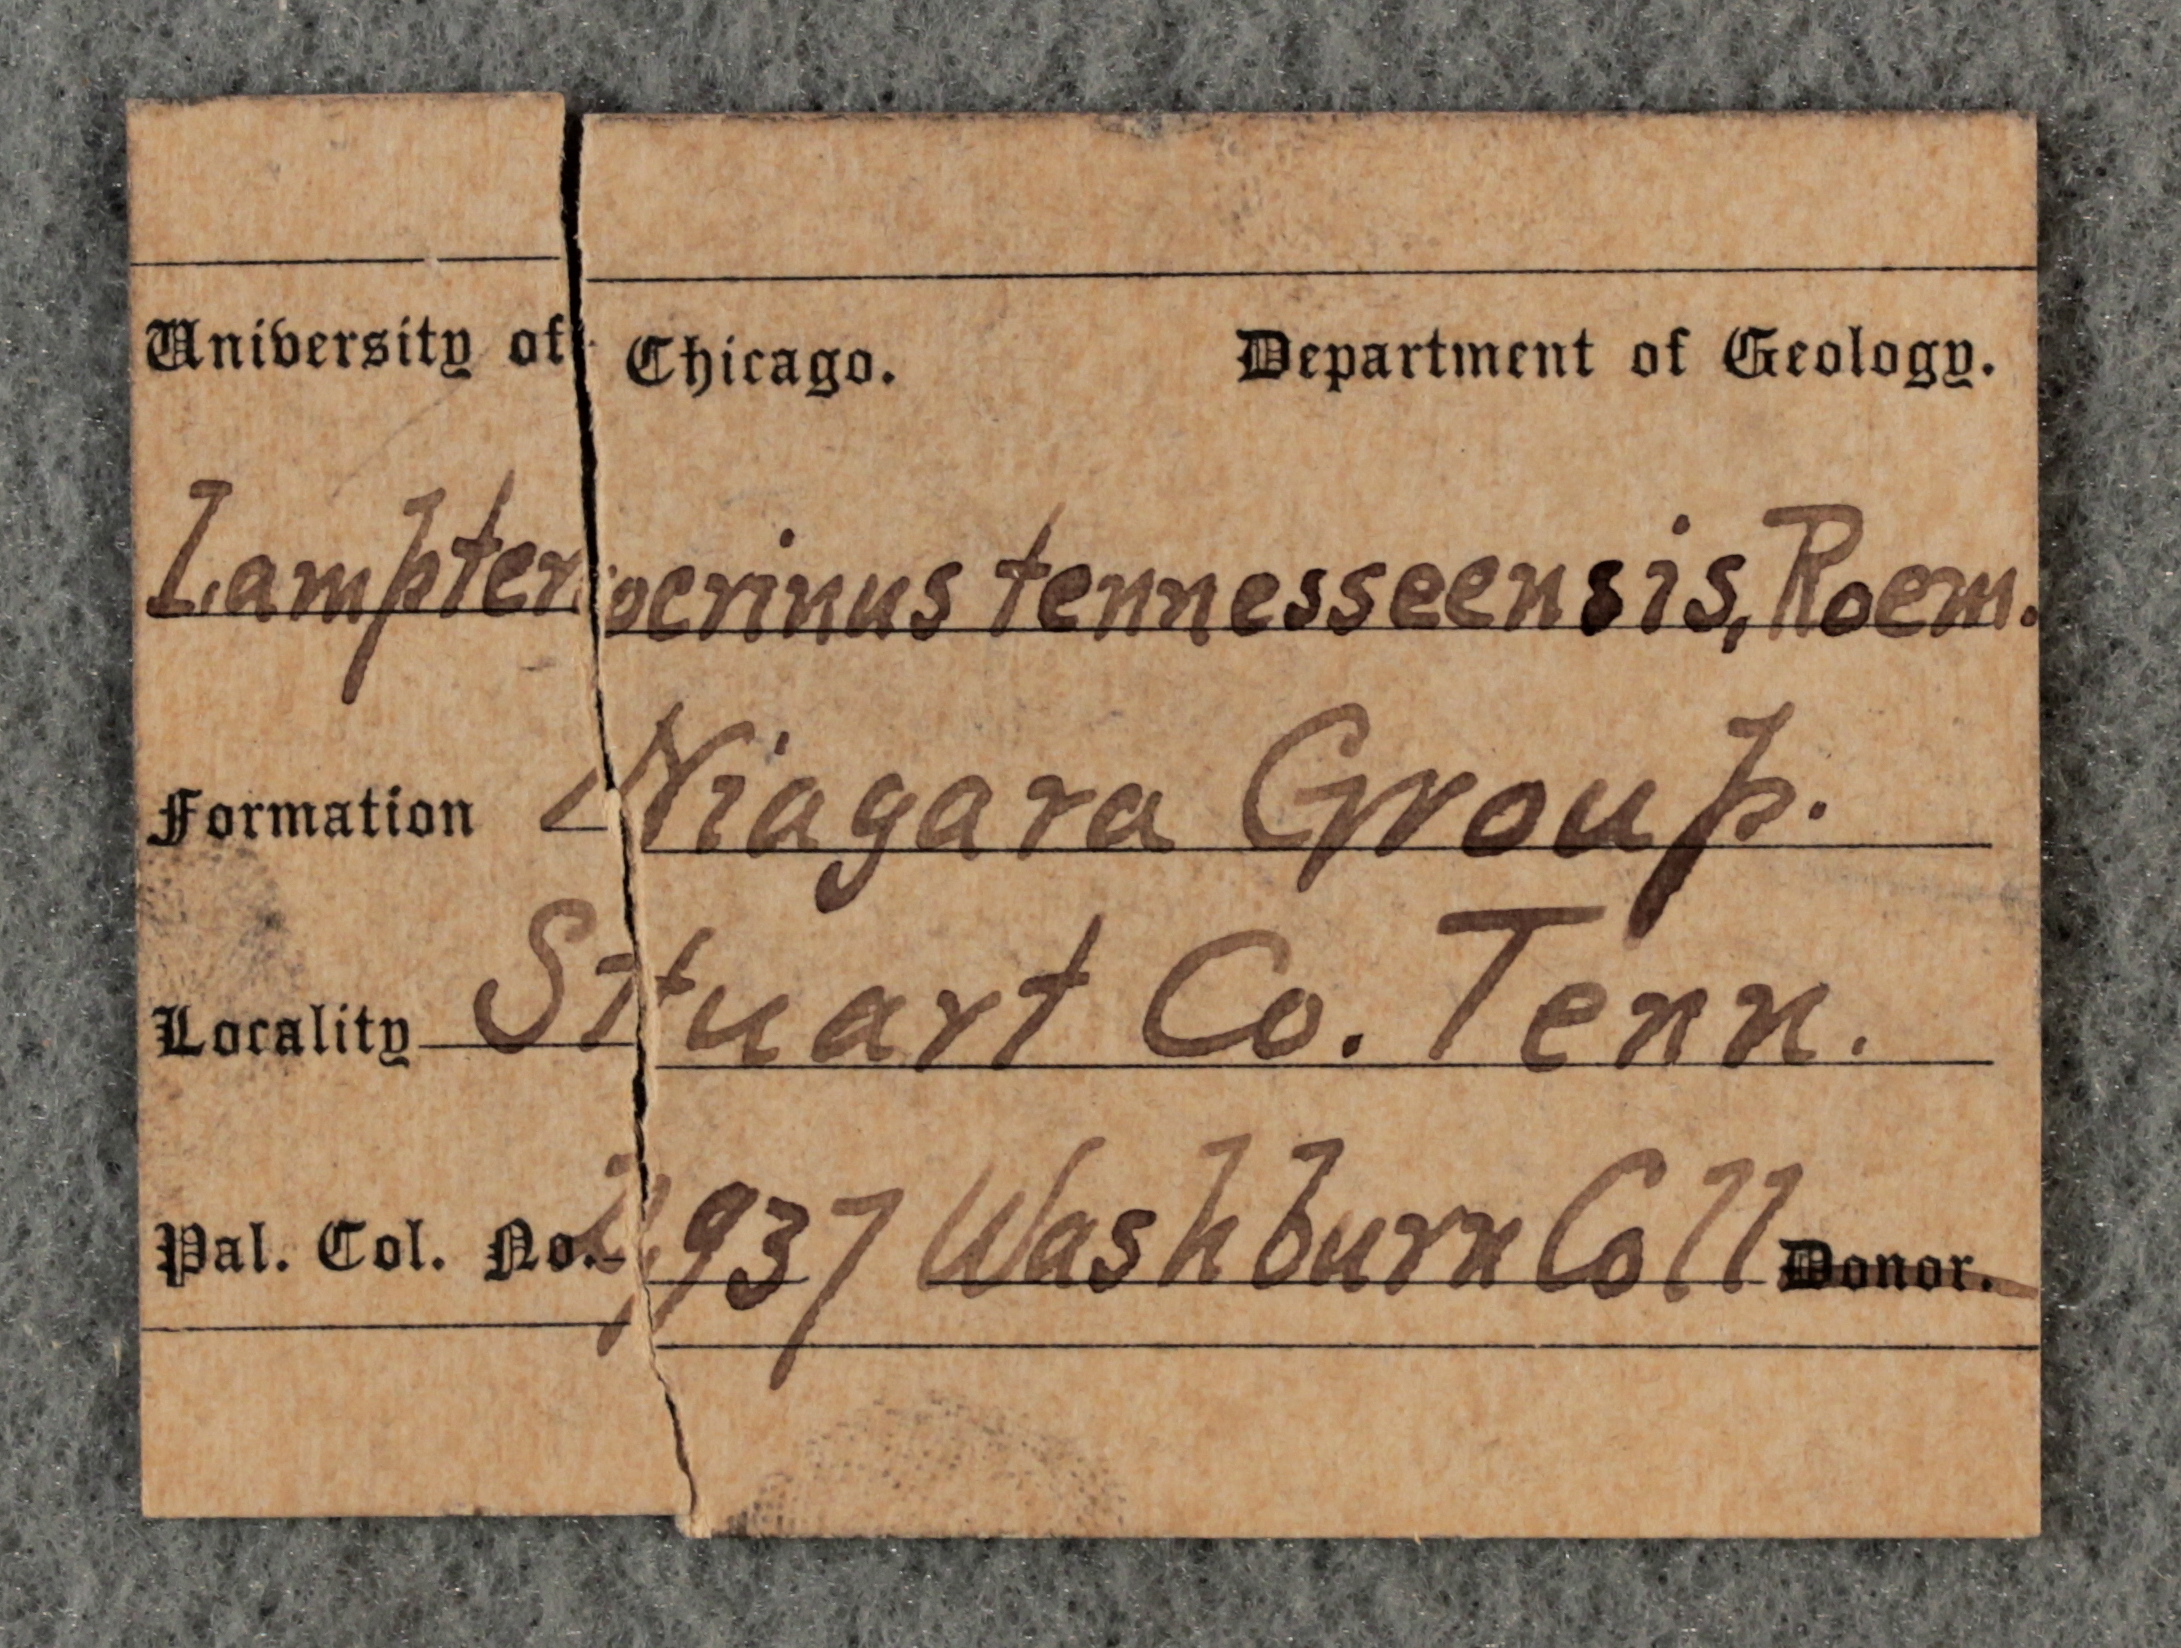 University of Chicago. Department of Geology.
Lampterocrinus tennesseensis, Roem.
Formation Niagara Group.
Locality Stuart Co. Tenn.
Pal. Col. No. Washburn Coll Donor.